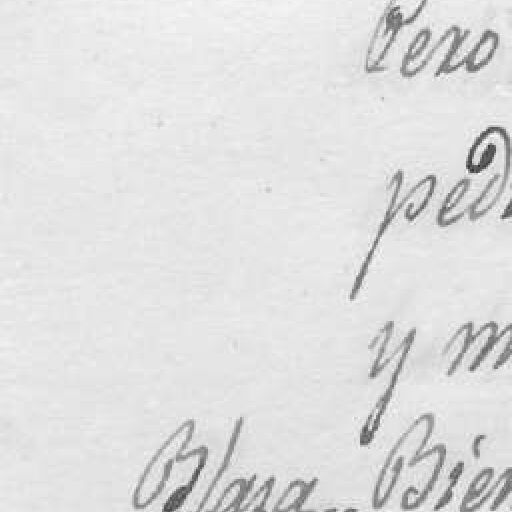 Pero
ped
y m
Blasa.. Bien